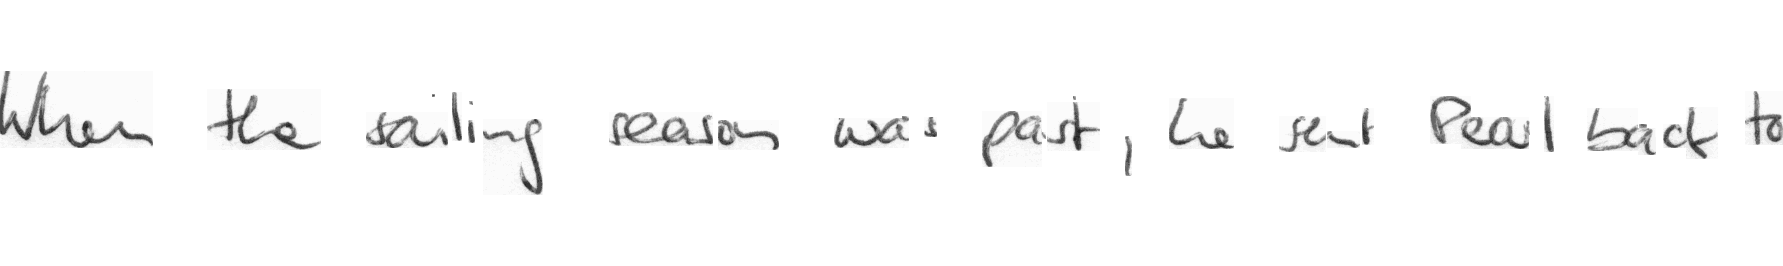 When the sailing season was past, he sent Pearl back to